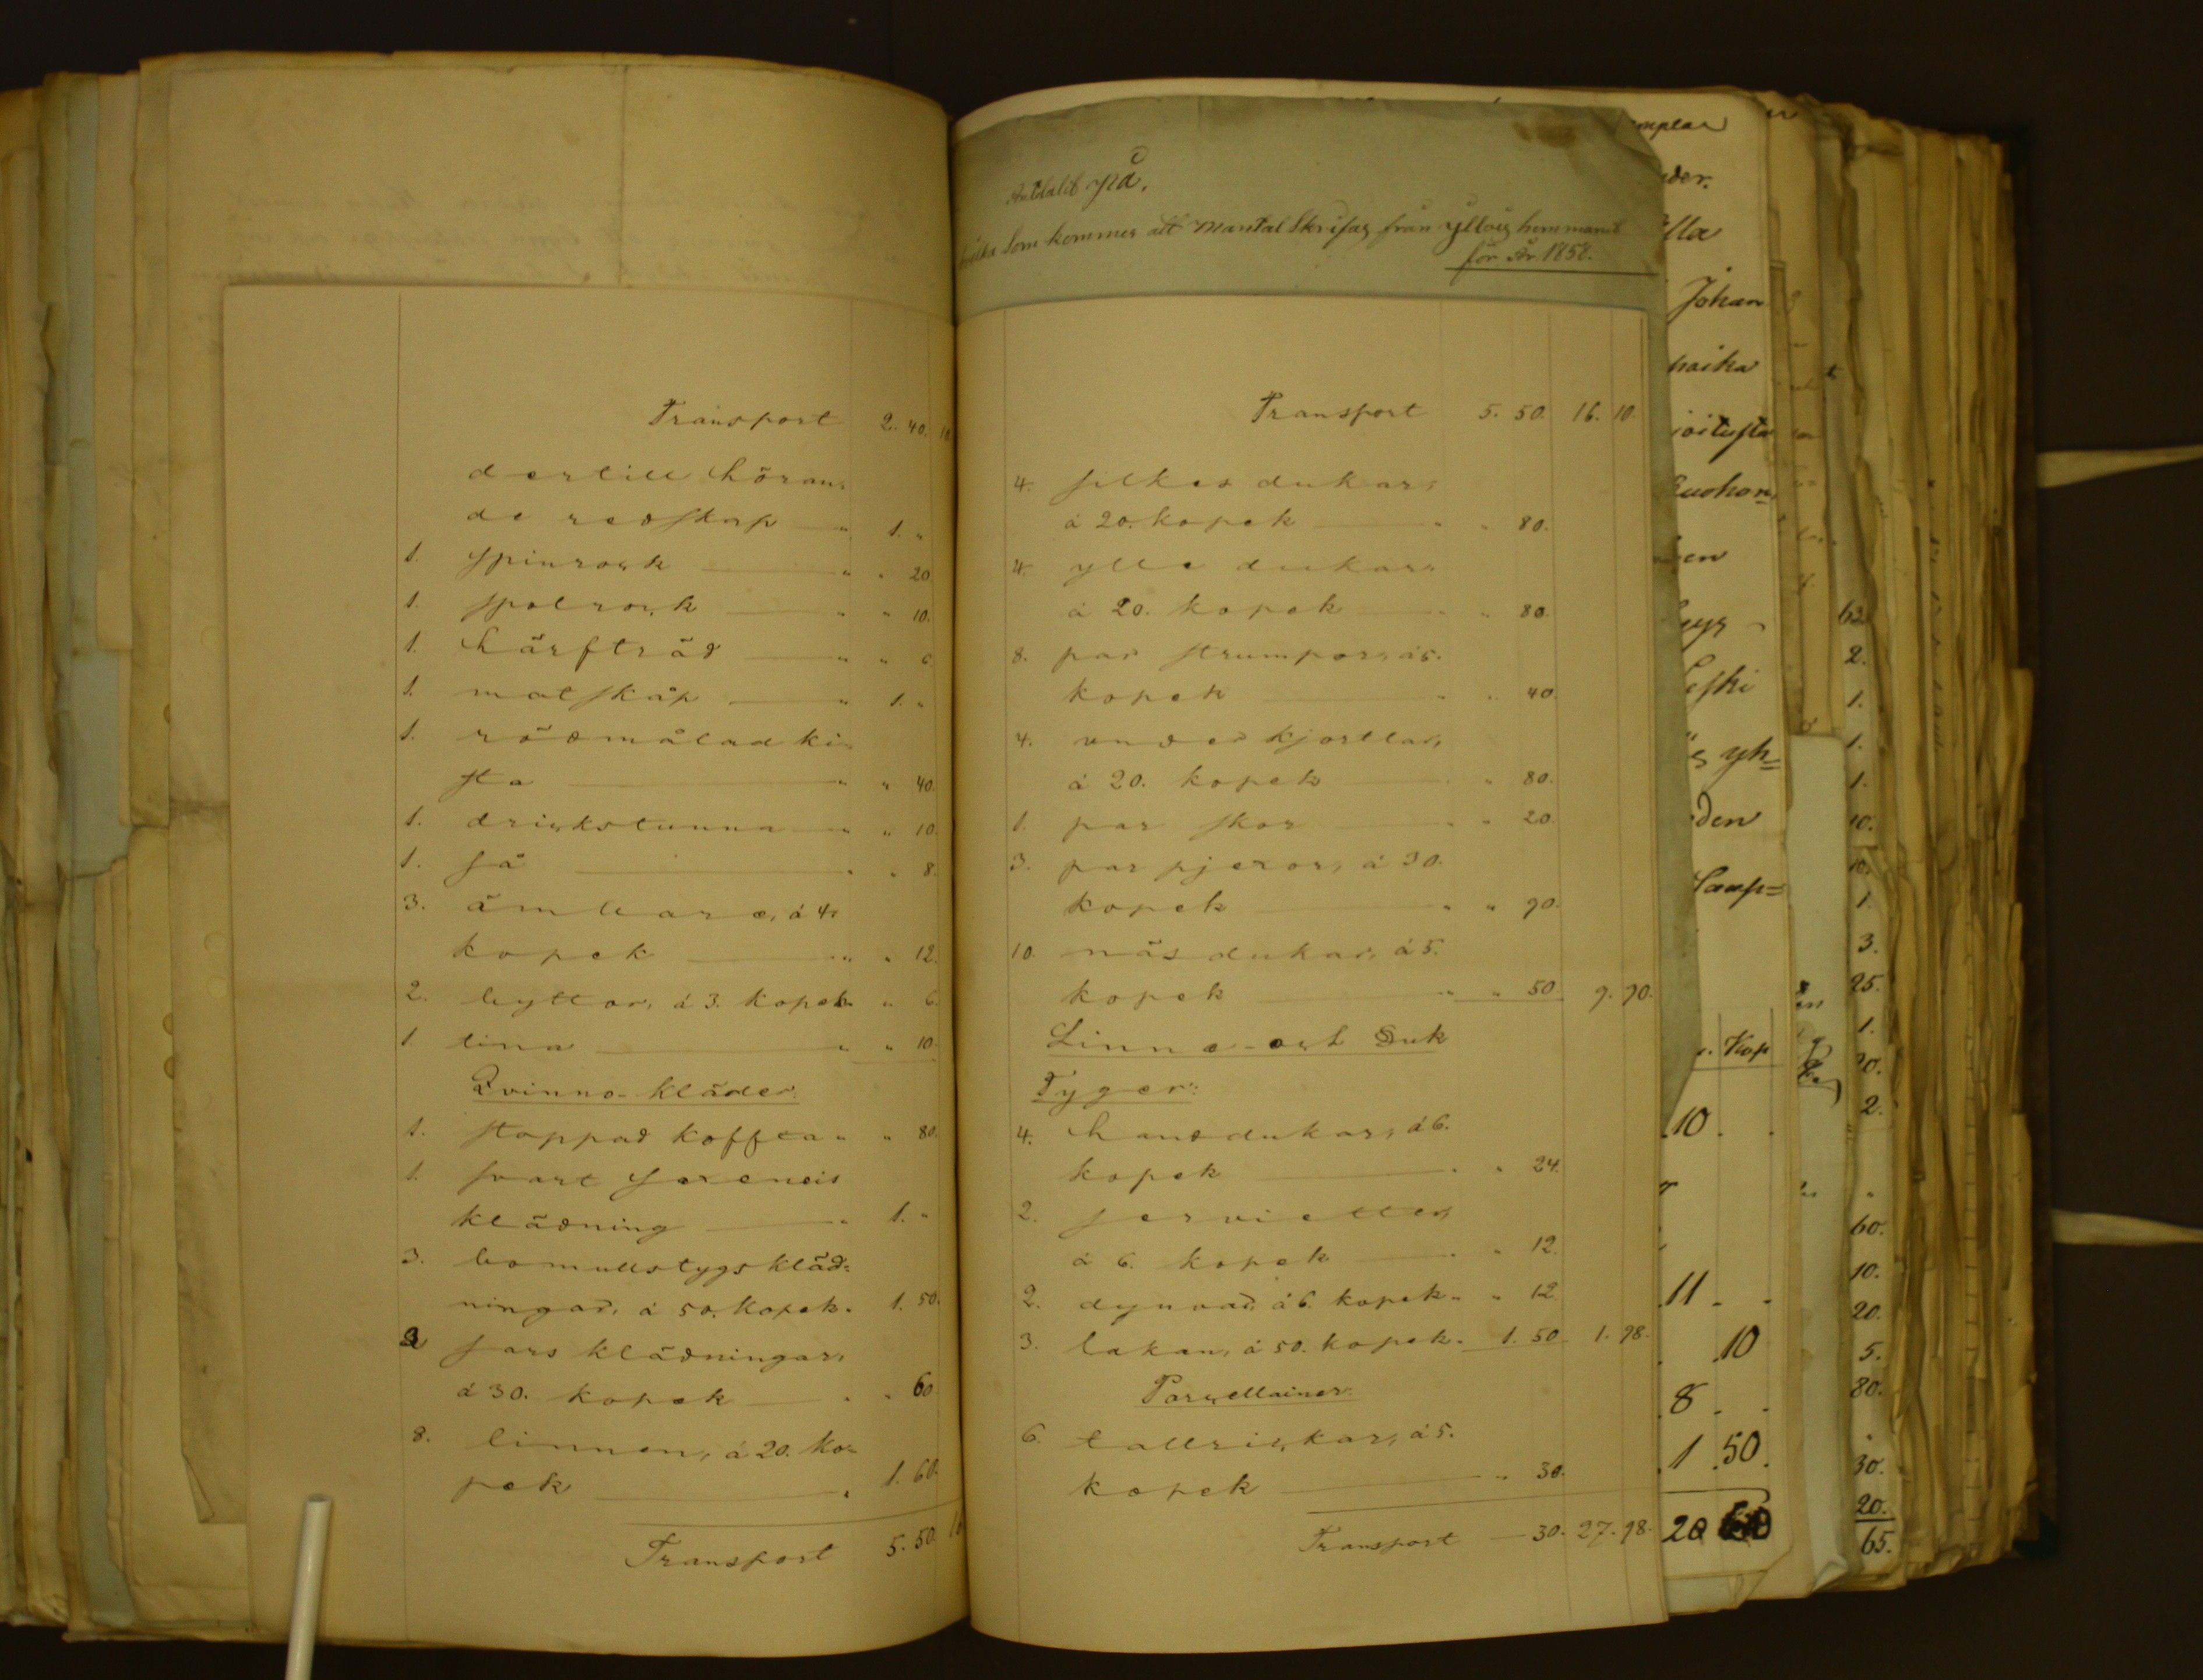 Transport 2. 40. 10
dertill höran=
de redskap — " 1. "
1. Spinrock — " " 20
1. Spolrock — " " 10.
1. härfträd — " " 6
1. matskåp — " 1. "
1. rödmålad ki=
sta — " " 40.
1. drickstunna — " " 10.
1. så — " " 8.
3. ämbare, á 4.
kopek — " " 12.
2. byttor, á 3. kopek " " 6.
1 tina — " " 10.
Qvinno-kläder.
1. stoppad koffta " " 80.
1. svart
klädning — " 1. "
3. bomullstygskläd=
ningar, á 50. kopek. 1. 50.
2 sars klädningar,
á 30. kopek — " " 60
8. linnen, á 20. ko=
pek — " 1. 60.
Transport 5. 50
Antalit på,
hvilka Som kommer att Mantal Skrifas från hemmanet
för År 1858.
Transport 5. 50. 16. 10.
4. silkes dukar,
á 20. kopek — " " 80.
4. ylle dukar,
á 20. kopek — " " 80.
8. par strumpor, á 5.
kopek — " " 40.
4. under kjortlar,
á 20. kopek — " " 80.
1. par skor — " " 20.
3. par pjexor, á 30.
kopek — " " 90.
10. näsdukar, á 5.
kopek — " " 50. 9. 90.
Linne- och Duk
Tyger:
4. handdukar, á 6.
kopek — " " 24.
2. servietter,
á 6. kopek — " " 12.
2. dynvar, á 6. kopek " " 12
3. lakan, á 50. kopek. 1. 50. 1. 98.
Porcellainer.
6. tallrickar, á 5.
kopek — " 30.
Transport — 30. 27. 98.
Johan
den
Kop
10
11
10
8
1 50
20
62
2.
1.
1.
1.
10.
10.
1.
3.
25.
1.
20.
2.
60.
10.
20.
5.
80.
30.
20.
65.